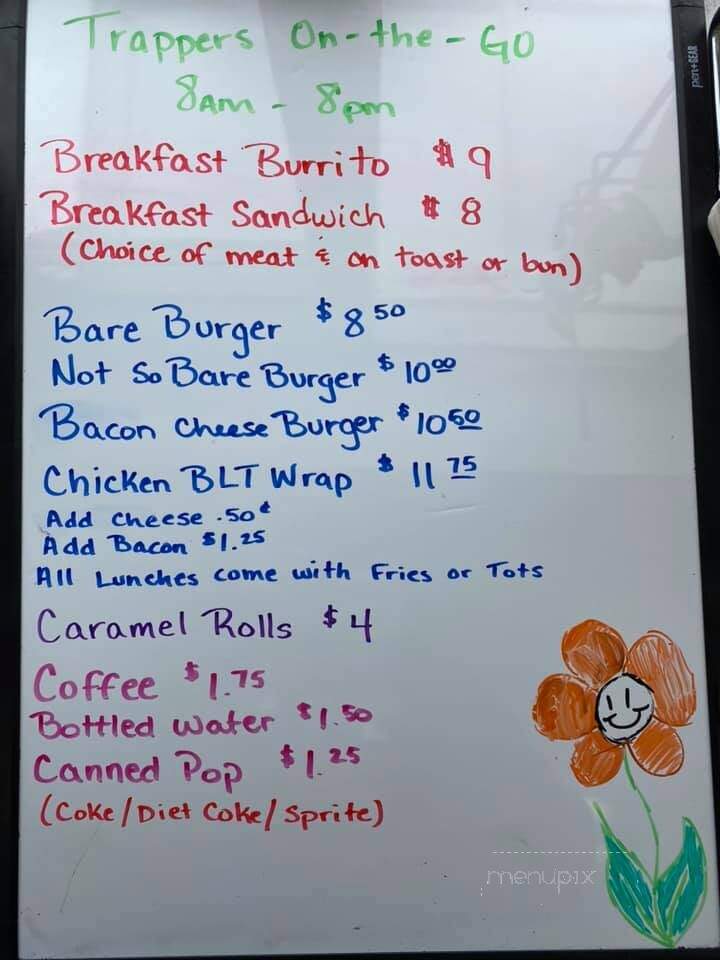 Trappers On-the-GO
8AM - 8pm
Breakfast Burrito $9
Breakfast Sandwich $8
(Choice of meat & on toast or bun)
Bare Burger $8 50
Not So Bare Burger $10 00
Bacon Cheese Burger $10 50
Chicken BLT Wrap $11 75
Add cheese .50¢
Add Bacon $1.25
All Lunches come with Fries or Tots
Caramel Rolls $4
Coffee $1.75
Bottled water $1.50
Canned Pop $1.25
(Coke/Diet Coke/Sprite)
pen+GEAR
menupix